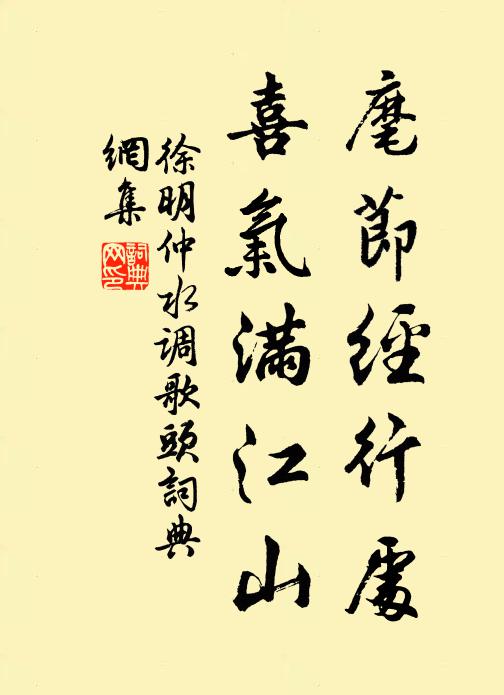 麾節經行處
喜氣滿江山
徐明仲水调歌頭詞典
網集
詞典
网印